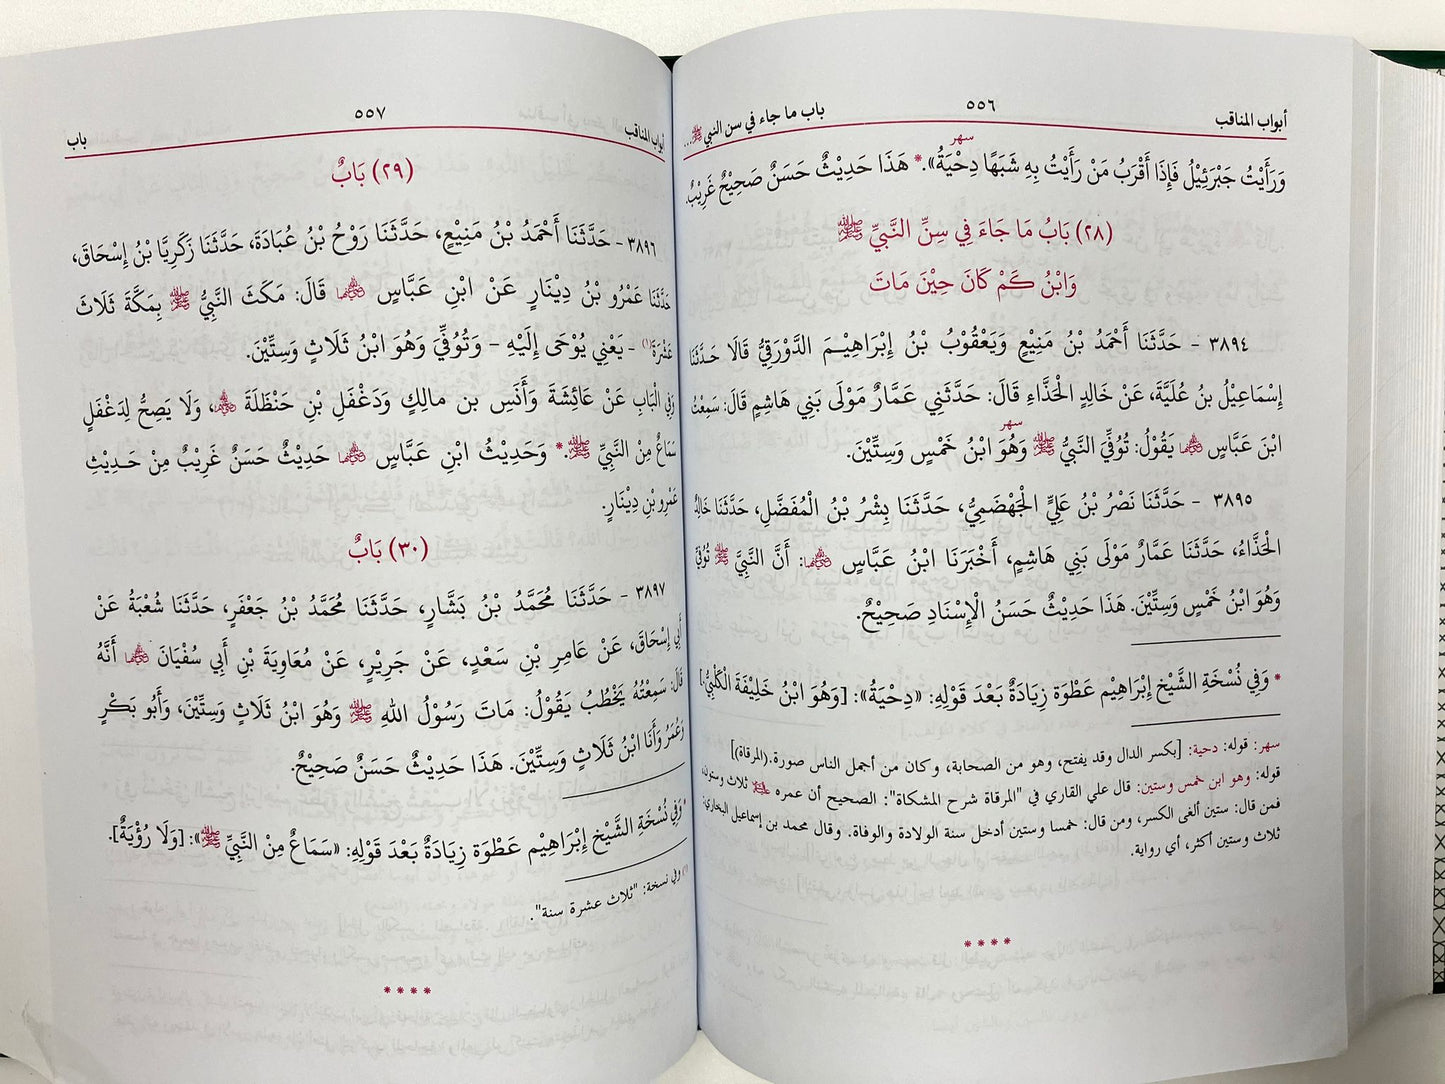 أبواب المناقب
٥٥٦
باب ما جاء في سن النبي ﷺ...
سهر
وَرَأَيْتُ جَبْرَئِيْلُ فَإِذَا أَقْرَبُ مَنْ رَأَيْتُ بِهِ شَبَهًا دِحْيَةُ». * هَذَا حَدِيْثٌ حَسَنٌ صَحِيْحٌ غَرِيْبٌ.
(٢٨) بَابُ مَا جَاءَ فِي سِنِّ النَّبِيِّ ﷺ
وَابْنُ كَمْ كَانَ حِيْنَ مَاتَ
٣٨٩٤ - حَدَّثَنَا أَحْمَدُ بْنُ مَنِيْعٍ وَيَعْقُوْبُ بْنُ إِبْرَاهِيْمَ الدَّوْرَقِيُّ قَالَا حَدَّثَنَا
إِسْمَاعِيْلُ بنُ عُلَيَّةَ، عَنْ خَالِدٍ الْحَذَّاءِ قَالَ: حَدَّثَنِي عَمَّارٌ مَوْلَى بَنِي هَاشِمٍ قَالَ: سَمِعْتُ
سهر
ابْنَ عَبَّاسٍ ﵄ يَقُوْلُ: تُوُفِّيَ النَّبِيُّ ﷺ وَهُوَ ابْنُ خَمْسٍ وَسِتِّيْنَ.
٣٨٩٥ - حَدَّثَنَا نَصْرُ بْنُ عَلِيٍّ الْجَهْضَمِيُّ، حَدَّثَنَا بِشْرُ بْنُ الْمُفَضَّلِ، حَدَّثَنَا خَالِدٌ
الْحَذَّاءُ، حَدَّثَنَا عَمَّارٌ مَوْلَى بَنِي هَاشِمٍ، أَخْبَرَنَا ابْنُ عَبَّاسٍ ﵄: أَنَّ النَّبِيَّ ﷺ تُوُفِّيَ
وَهُوَ ابْنُ خَمْسٍ وَسِتِّيْنَ. هَذَا حَدِيْثٌ حَسَنُ الْإِسْنَادِ صَحِيْحٌ.
* وَفِي نُسْخَةِ الشَّيْخِ إِبْرَاهِيْم عَطْوَة زِيَادَةٌ بَعْدَ قَوْلِهِ: «دِحْيَةُ»: [وَهُوَ ابْنُ خَلِيْفَةَ الْكَلْبِيُّ.]
سهر: قوله: دحية: [بكسر الدال وقد يفتح، وهو من الصحابة، وكان من أجمل الناس صورة.(المرقاة)]
قوله: وهو ابن خمس وستين: قال علي القاري في "المرقاة شرح المشكاة": الصحيح أن عمره ﷺ ثلاث وستون،
فمن قال: ستين ألغى الكسر، ومن قال: خمسا وستين أدخل سنة الولادة والوفاة. وقال محمد بن إسماعيل البخاري:
ثلاث وستين أكثر، أي رواية.
* * * *
أبواب المناقب
٥٥٧
باب
(٢٩) بَابٌ
٣٨٩٦ - حَدَّثَنَا أَحْمَدُ بْنُ مَنِيْعٍ، حَدَّثَنَا رَوْحُ بْنُ عُبَادَةَ، حَدَّثَنَا زَكَرِيَّا بْنُ إِسْحَاقَ،
حَدَّثَنَا عَمْرُو بْنُ دِيْنَارٍ عَنْ ابْنِ عَبَّاسٍ ﵄ قَالَ: مَكَثَ النَّبِيُّ ﷺ بِمَكَّةَ ثَلَاثَ
عَشْرَةَ(١) - يَعْنِي يُوْحَى إِلَيْهِ - وَتُوُفِّيَ وَهُوَ ابْنُ ثَلَاثٍ وَسِتِّيْنَ.
وَفِي الْبَابِ عَنْ عَائِشَةَ وَأَنَسِ بن مالِكٍ وَدَغْفَلِ بْنِ حَنْظَلَةَ ﵃، وَلَا يَصِحُّ لِدَغْفَلٍ
سَمَاعٌ مِنْ النَّبِيِّ ﷺ. * وَحَدِيْثُ ابْنِ عَبَّاسٍ ﵄ حَدِيْثٌ حَسَنٌ غَرِيْبٌ مِنْ حَدِيْثِ
عَمْرِو بْنِ دِيْنَارٍ.
(٣٠) بَابٌ
٣٨٩٧ - حَدَّثَنَا مُحَمَّدُ بْنُ بَشَّارٍ، حَدَّثَنَا مُحَمَّدُ بْنُ جَعْفَرٍ، حَدَّثَنَا شُعْبَةُ عَنْ
أَبِي إِسْحَاقَ، عَنْ عَامِرِ بْنِ سَعْدٍ، عَنْ جَرِيْرٍ، عَنْ مُعَاوِيَةَ بْنِ أَبِي سُفْيَانَ ﵄ أَنَّهُ
قَالَ: سَمِعْتُهُ يَخْطُبُ يَقُوْلُ: مَاتَ رَسُوْلُ اللهِ ﷺ وَهُوَ ابْنُ ثَلَاثٍ وَسِتِّيْنَ، وَأَبُو بَكْرٍ
وَعُمَرُ وَأَنَا ابْنُ ثَلَاثٍ وَسِتِّيْنَ. هَذَا حَدِيْثٌ حَسَنٌ صَحِيْحٌ.
* وَفِي نُسْخَةِ الشَّيْخِ إِبْرَاهِيْم عَطْوَة زِيَادَةٌ بَعْدَ قَوْلِهِ: «سَمَاعٌ مِنْ النَّبِيِّ ﷺ»: [وَلَا رُؤْيَةٌ].
(١) وفي نسخة: "ثلاث عشرة سنة".
* * * *